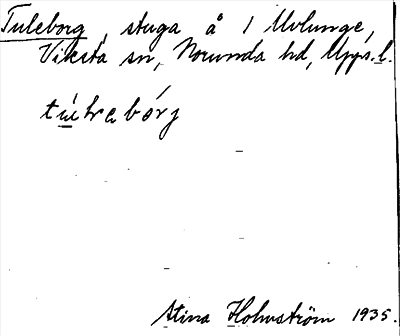 Tuleborg, stuga å 1 Uvlunge,
Viksta sn, Norunda hd, Upps. l.
Stina Holmström 1935.